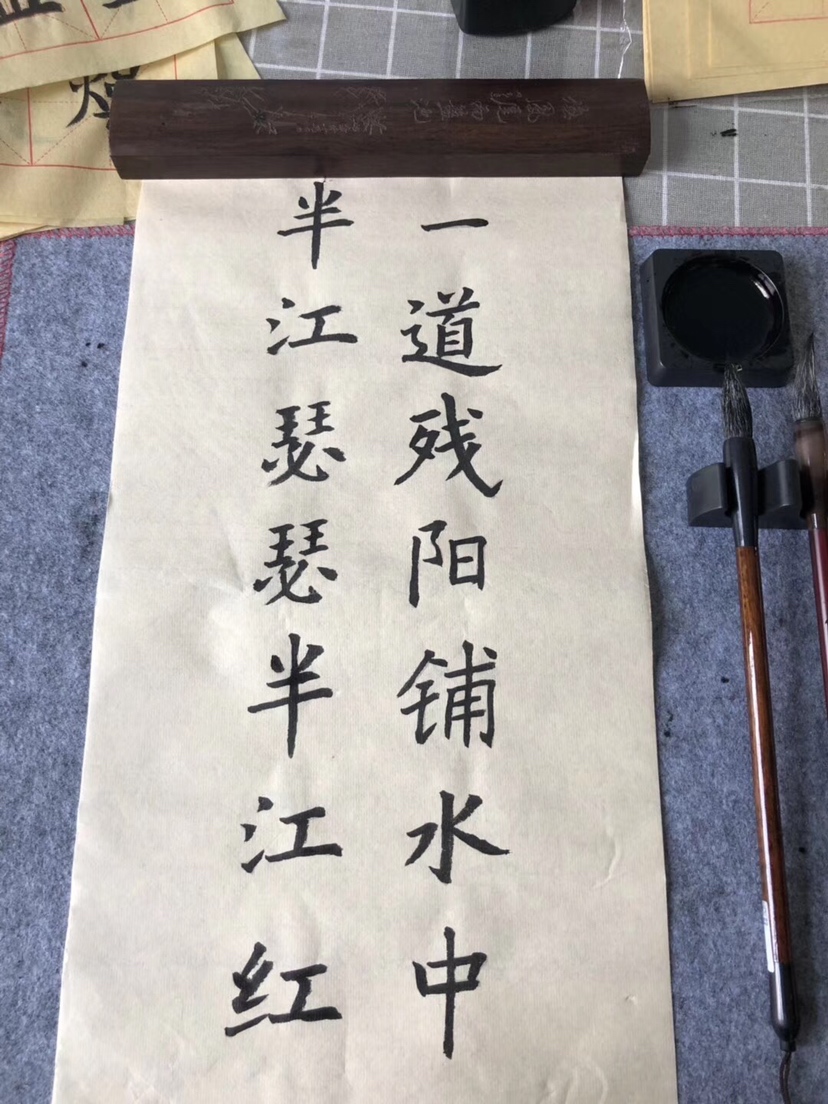 一道残阳铺水中
半江瑟瑟半江红